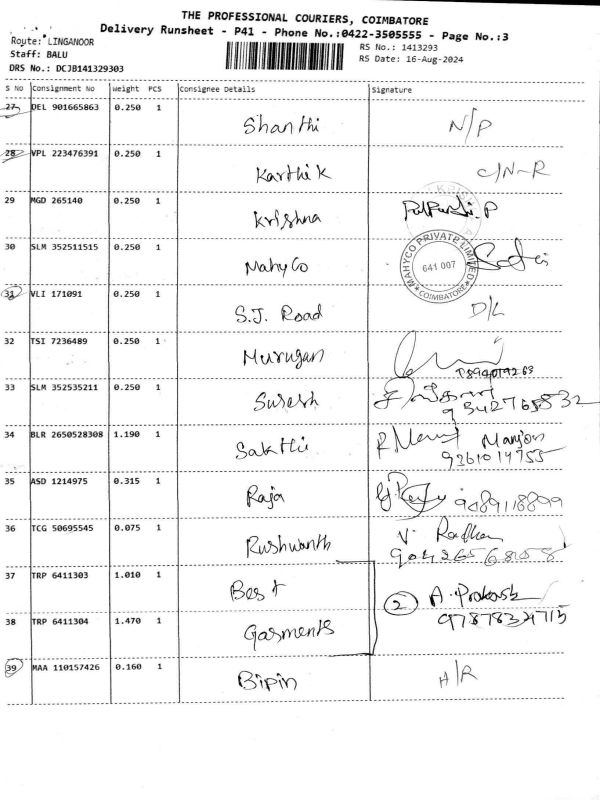 THE PROFESSIONAL COURIERS, COIMBATORE
Delivery Runsheet - P41 - Phone No.:0422-3505555 - Page No.:3
Route: LINGANOOR
RS No.: 1413293
Staff: BALU
RS Date: 16-Aug-2024
DRS No.: DCJB141329303
S No Consignment No Weight PCS Consignee Details Signature
27 DEL 901665863 0.250 1 Shanthi N/P
28 VPL 223476391 0.250 1 Karthik C/N-R
29 MGD 265140 0.250 1 Krishna
30 SLM 352511515 0.250 1 Mahyco
MAHYCO PRIVATE LIMITED
641 007
COIMBATORE
31 VLI 171091 0.250 1 S.J. Road D/L
32 TSI 7236489 0.250 1 Murugan
33 SLM 352535211 0.250 1 Suresh
34 BLR 2650528308 1.190 1 Sakthi
9361014755
35 ASD 1214975 0.315 1 Raja
36 TCG 50695545 0.075 1 Rushwanth V. Radha
37 TRP 6411303 1.010 1 Best 2 A. Prakash
38 TRP 6411304 1.470 1 Garments
39 MAA 110157426 0.160 1 Bipin A/R